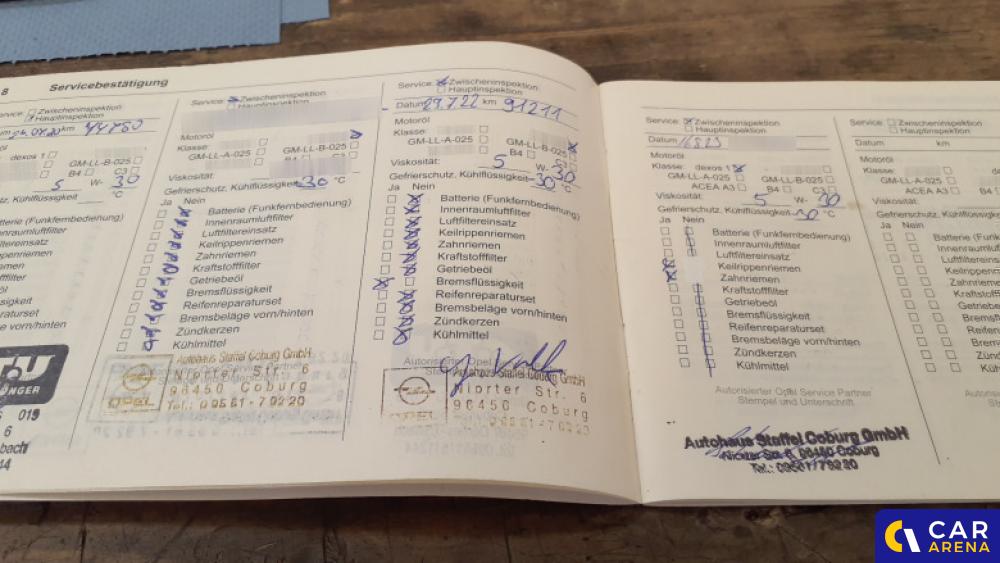 8 Servicebestätigung
Zwischeninspektion
Hauptinspektion
km 44750
dexos 1
GM-LL-B-025
B4 C3
5 W- 30
Kühlflüssigkeit °C
Batterie (Funkfernbedienung)
Innenraumluftfilter
Luftfiltereinsatz
Keilrippenriemen
Zahnriemen
Kraftstofffilter
Getriebeöl
Bremsflüssigkeit
Reifenreparaturset
Bremsbeläge vorn/hinten
Zündkerzen
Kühlmittel
019
6
44
Service: Zwischeninspektion
Hauptinspektion
Motoröl
Klasse:
GM-LL-A-025 GM-LL-B-025
B4
Viskosität:
Gefrierschutz, Kühlflüssigkeit -30 °C
Ja Nein
Batterie (Funkfernbedienung)
Innenraumluftfilter
Luftfiltereinsatz
Keilrippenriemen
Zahnriemen
Kraftstofffilter
Getriebeöl
Bremsflüssigkeit
Reifenreparaturset
Bremsbeläge vorn/hinten
Zündkerzen
Kühlmittel
Autohaus Staffel Coburg GmbH
Niorter Str. 6
96450 Coburg
OPEL Tel.: 09561-79220
Service: Zwischeninspektion
Hauptinspektion
Datum 29.7.22 km 91211
Motoröl
Klasse:
GM-LL-A-025 GM-LL-B-025
B4 C3
Viskosität: 5 W- 30
Gefrierschutz, Kühlflüssigkeit -30 °C
Ja Nein
Batterie (Funkfernbedienung)
Innenraumluftfilter
Luftfiltereinsatz
Keilrippenriemen
Zahnriemen
Kraftstofffilter
Getriebeöl
Bremsflüssigkeit
Reifenreparaturset
Bremsbeläge vorn/hinten
Zündkerzen
Kühlmittel
Autorisierter Opel
Autohaus Staffel Coburg GmbH
Niorter Str. 6
96450 Coburg
OPEL 09561-79220
Service: Zwischeninspektion
Hauptinspektion
Datum
Motoröl
Klasse: dexos 1
GM-LL-A-025 GM-LL-B-025
ACEA A3 B4 C3
Viskosität: 5 W- 30
Gefrierschutz, Kühlflüssigkeit -30 °C
Ja Nein
Batterie (Funkfernbedienung)
Innenraumluftfilter
Luftfiltereinsatz
Keilrippenriemen
Zahnriemen
Kraftstofffilter
Getriebeöl
Bremsflüssigkeit
Reifenreparaturset
Bremsbeläge vorn/hinten
Zündkerzen
Kühlmittel
Autorisierter Opel Service Partner
Stempel und Unterschrift
Autohaus Staffel Coburg GmbH
Niorter Str. 6, 96450 Coburg
Tel.: 09561/79220
Service: Zwischeninspektion
Hauptinspektion
Datum km
Motoröl
Klasse:
GM-LL-A-025
ACEA A3 B4
Viskosität:
Gefrierschutz, Kühlflüssigkeit
Ja Nein
Batterie (Funkf
Innenraumluf
Luftfiltereinsa
Keilrippenri
Zahnriemen
Kraftstofff
Getriebeöl
Bremsfl
Reifenre
Bremsb
Zündke
Kühlmi
Autorisi
Ste
CAR
ARENA